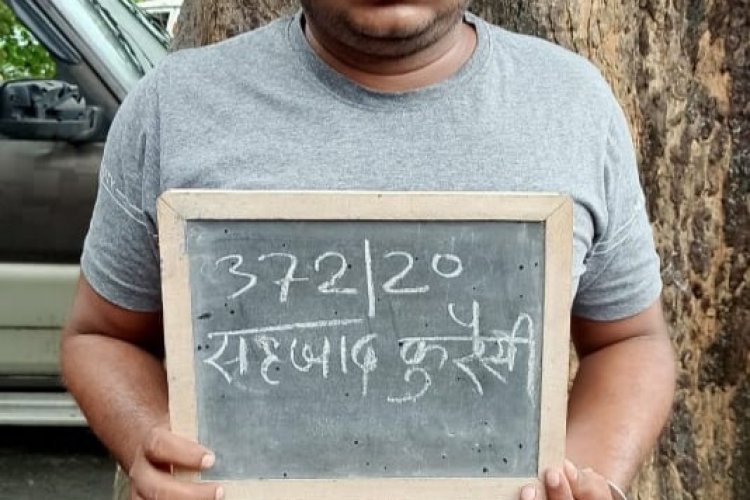 372/20
सहजाद कुरैसी